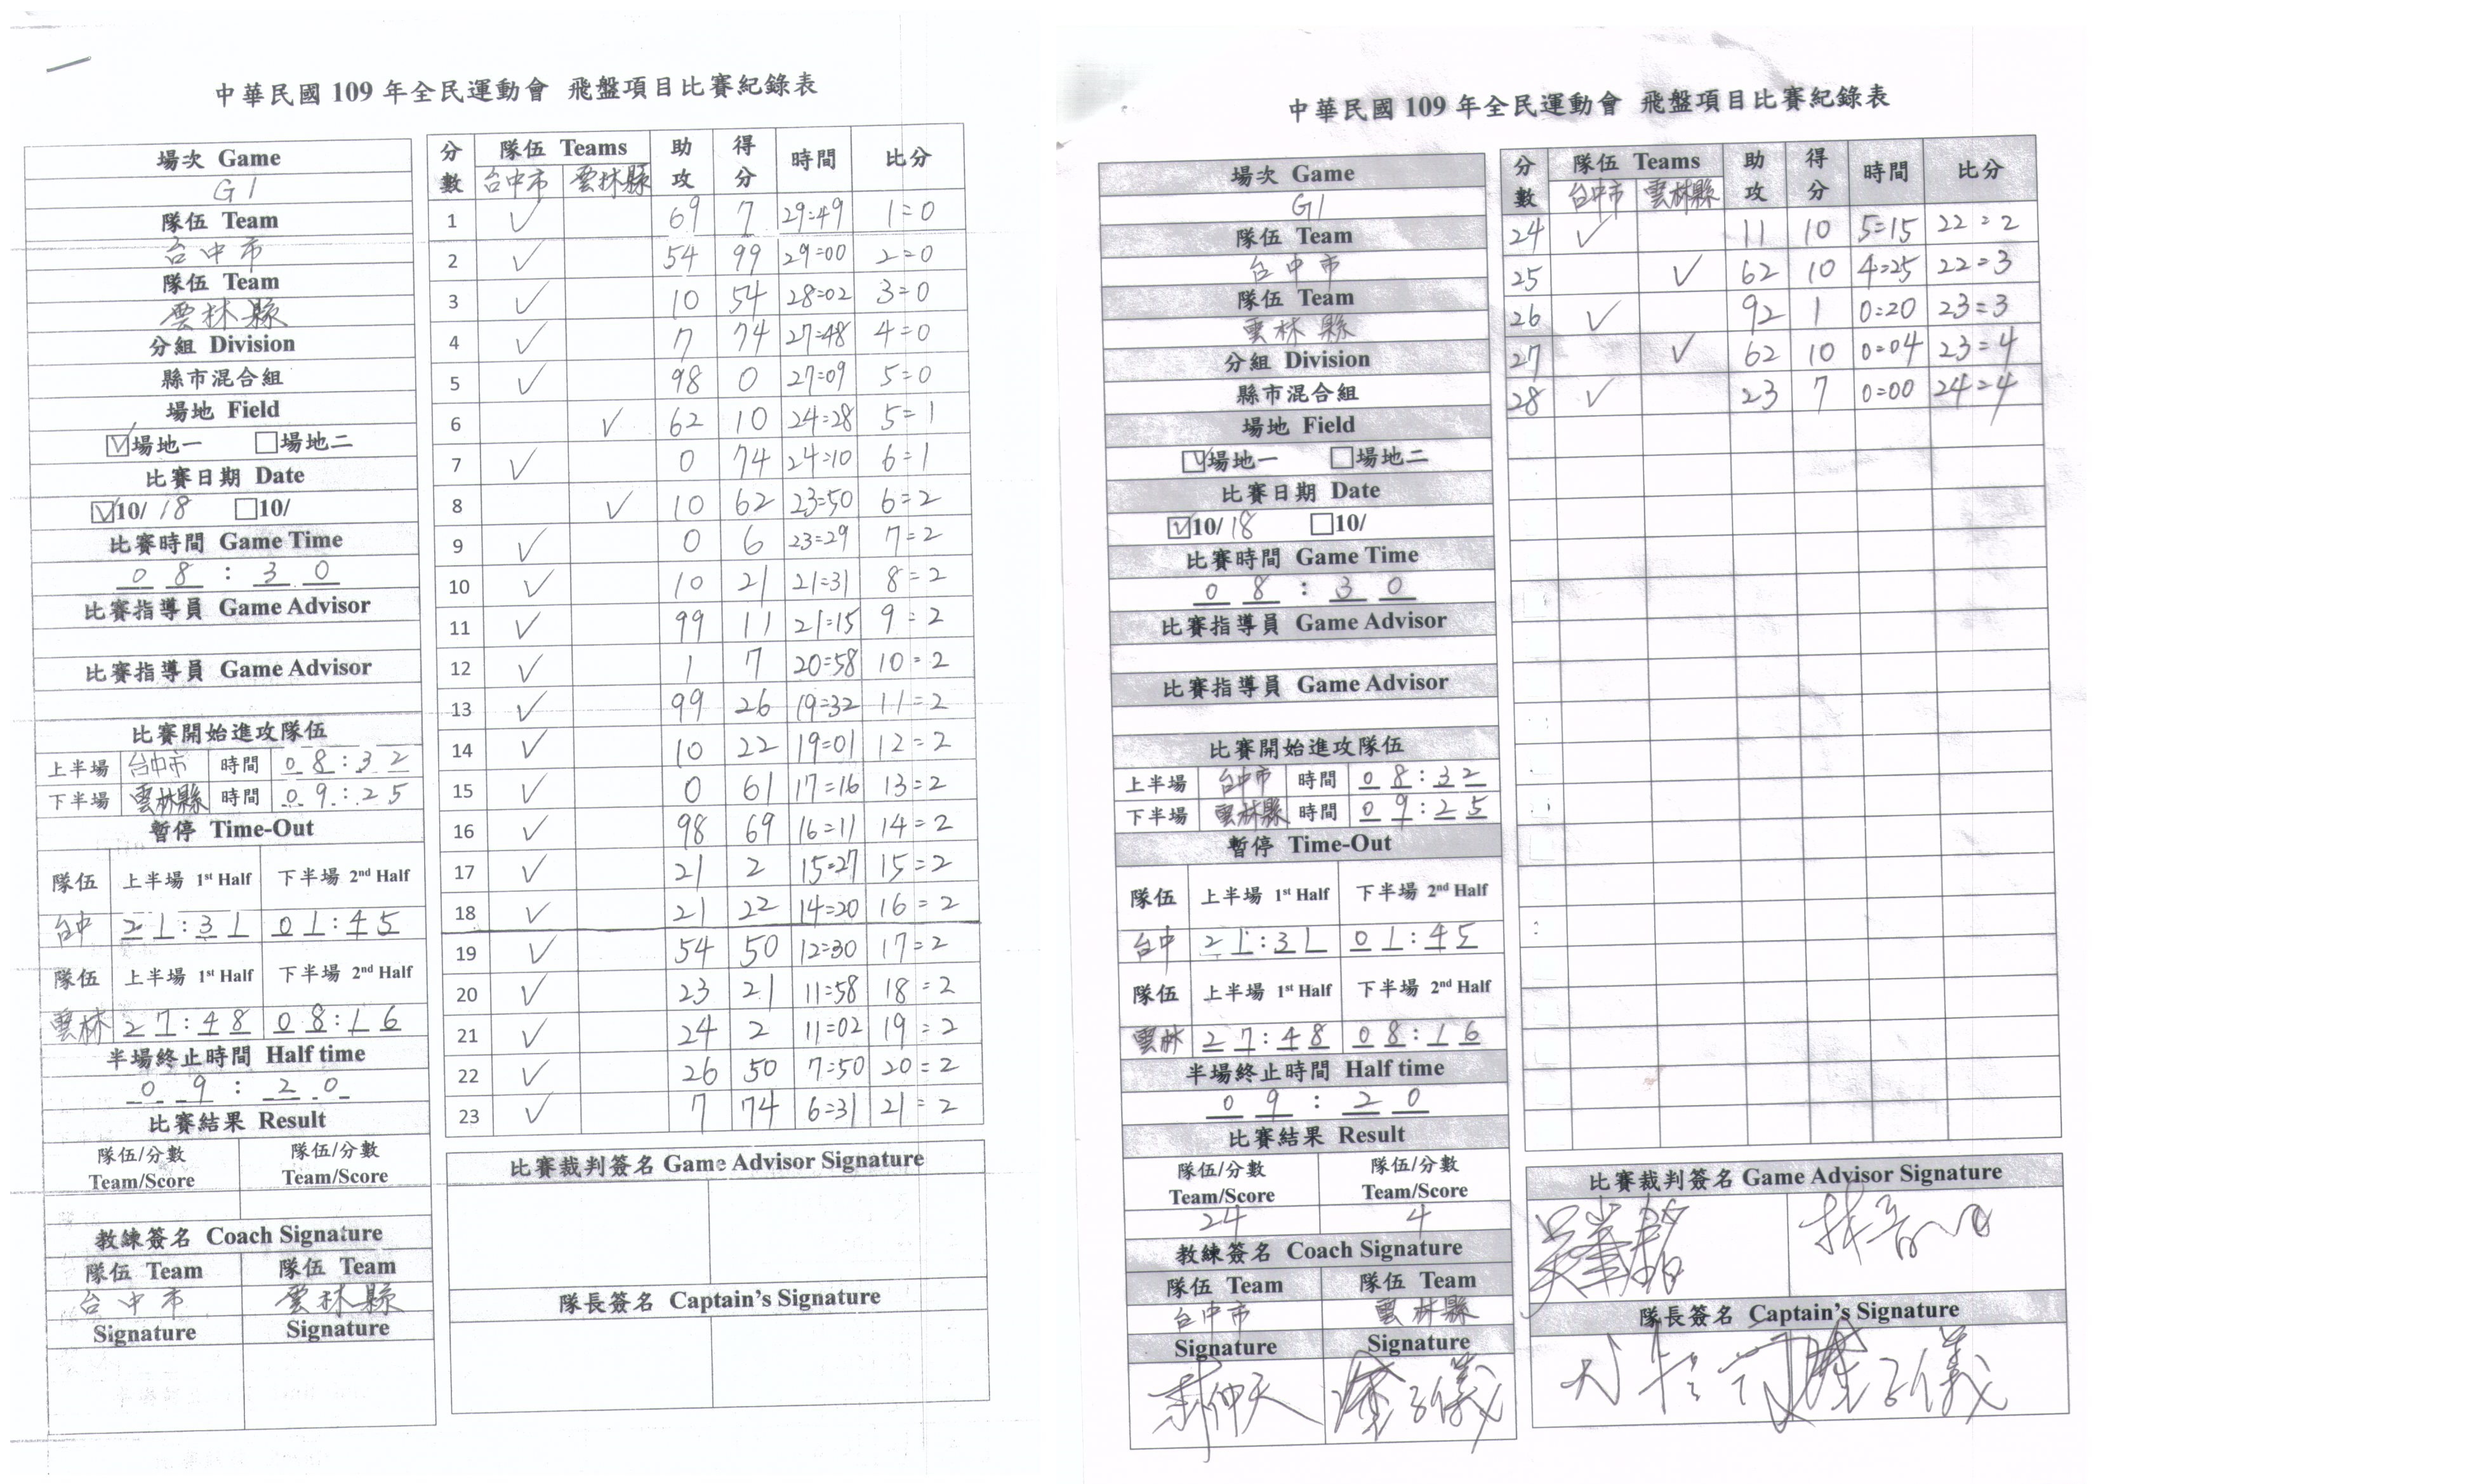 中華民國 109 年全民運動會 飛盤項目比賽紀錄表
場次 Game
G1
隊伍 Team
台中市
隊伍 Team
雲林縣
分組 Division
縣市混合組
場地 Field
☑場地一 ☐場地二
比賽日期 Date
☑10/18 ☐10/
比賽時間 Game Time
08:30
比賽指導員 Game Advisor
比賽指導員 Game Advisor
比賽開始進攻隊伍
上半場 台中市 時間 08:32
下半場 雲林縣 時間 09:25
暫停 Time-Out
隊伍 上半場 1st Half 下半場 2nd Half
台中 21:31 01:45
隊伍 上半場 1st Half 下半場 2nd Half
雲林 27:48 08:16
半場終止時間 Half time
09:20
比賽結果 Result
隊伍/分數 隊伍/分數
Team/Score Team/Score
教練簽名 Coach Signature
隊伍 Team 隊伍 Team
台中市 雲林縣
Signature Signature
分數 隊伍 Teams 助攻 得分 時間 比分
台中市 雲林縣
1 ✓ 69 7 29=49 1=0
2 ✓ 54 99 29=00 2=0
3 ✓ 10 54 28=02 3=0
4 ✓ 7 74 27=48 4=0
5 ✓ 98 0 27=09 5=0
6 ✓ 62 10 24=28 5=1
7 ✓ 0 74 24=10 6=1
8 ✓ 10 62 23=50 6=2
9 ✓ 0 6 23=29 7=2
10 ✓ 10 21 21=31 8=2
11 ✓ 99 11 21=15 9=2
12 ✓ 1 7 20=58 10=2
13 ✓ 99 26 19=32 11=2
14 ✓ 10 22 19=01 12=2
15 ✓ 0 61 17=16 13=2
16 ✓ 98 69 16=11 14=2
17 ✓ 21 2 15=27 15=2
18 ✓ 21 22 14=20 16=2
19 ✓ 54 50 12=30 17=2
20 ✓ 23 21 11=58 18=2
21 ✓ 24 2 11=02 19=2
22 ✓ 26 50 7=50 20=2
23 ✓ 7 74 6=31 21=2
比賽裁判簽名 Game Advisor Signature
隊長簽名 Captain's Signature
中華民國 109 年全民運動會 飛盤項目比賽紀錄表
場次 Game
G1
隊伍 Team
台中市
隊伍 Team
雲林縣
分組 Division
縣市混合組
場地 Field
☑場地一 ☐場地二
比賽日期 Date
☑10/18 ☐10/
比賽時間 Game Time
08:30
比賽指導員 Game Advisor
比賽指導員 Game Advisor
比賽開始進攻隊伍
上半場 台中市 時間 08:32
下半場 雲林縣 時間 09:25
暫停 Time-Out
隊伍 上半場 1st Half 下半場 2nd Half
台中 21:31 01:45
隊伍 上半場 1st Half 下半場 2nd Half
雲林 27:48 08:16
半場終止時間 Half time
09:20
比賽結果 Result
隊伍/分數 隊伍/分數
Team/Score Team/Score
24 4
教練簽名 Coach Signature
隊伍 Team 隊伍 Team
台中市 雲林縣
Signature Signature
分數 隊伍 Teams 助攻 得分 時間 比分
台中市 雲林縣
24 ✓ 11 10 5=15 22=2
25 ✓ 62 10 4=25 22=3
26 ✓ 92 1 0=20 23=3
27 ✓ 62 10 0=04 23=4
28 ✓ 23 7 0=00 24=4
比賽裁判簽名 Game Advisor Signature
隊長簽名 Captain's Signature